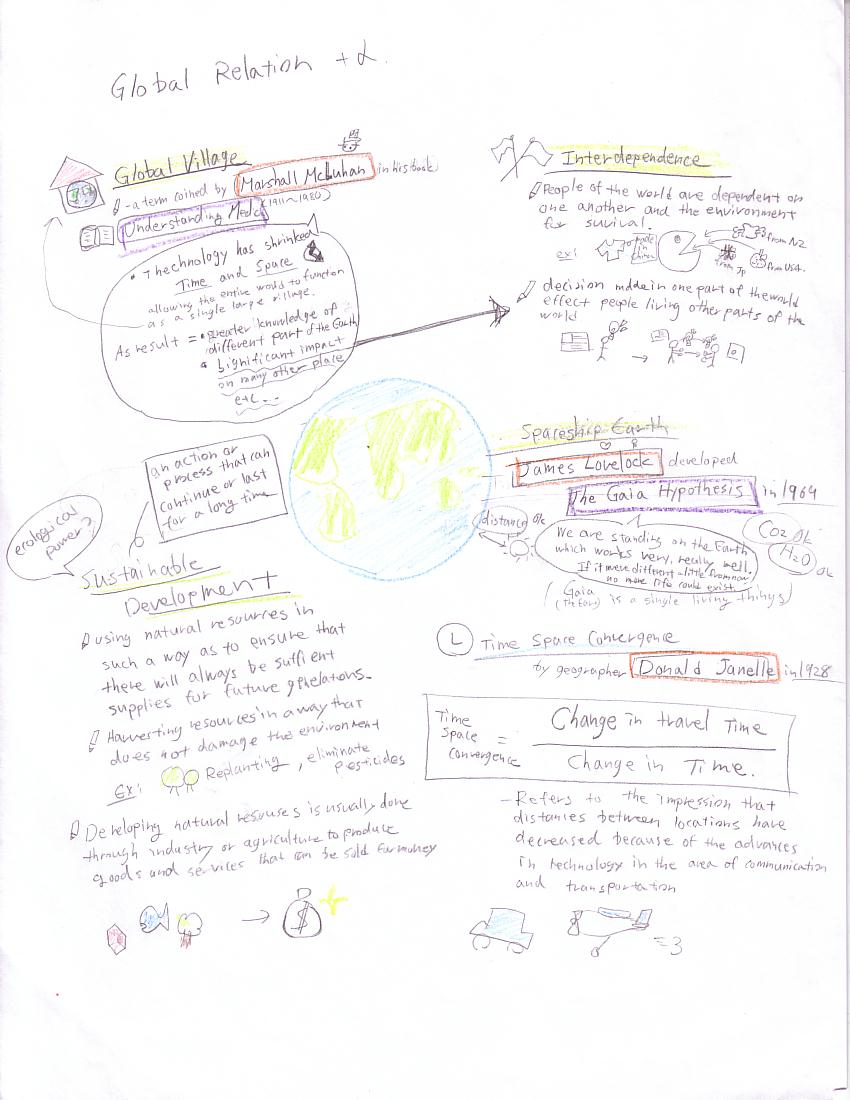 Global Relation + α.
Global Village
- a term coined by Marshall McLuhan in his book
(1911~1980)
Understanding Media
• Thechnology has shrinked
Time and Space
allowing the entire world to function
as a single large village.
As result = • greater knowledge of
different part of the Earth
• significant impact
on many other place
etc...
Interdependence
People of the world are dependent on
one another and the environment
for suvival.
ex:
made
in
china
from NZ
from Jp
from USA.
decision made in one part of the world
effect people living other parts of the
world
an action or
process that can
continue or last
for a long time
ecological
power?
Sustainable
Development
using natural resources in
such a way as to ensure that
there will always be suffient
supplies for future
Harversting resources in a way that
does not damage the environment
Ex: Replanting, eliminate
pesticides
Developing natural resouses is usually done
through industry or agriculture to produce
goods and services that can be sold for money
$
Spaceship Earth
James Lovelock developed
The Gaia Hypothesis in 1964
distance ok
We are standing on the Earth
which works very, really well.
If it were different little from now
no more life could exist.
CO2 ok
H2O ok
( Gaia is a single living things)
(The Earth)
L Time Space Convergence
by geographer Donald Janelle in 1928
Time
Space
Convergence
=
Change in travel Time
Change in Time.
- Refers to the impression that
distances between locations have
decreased because of the advances
in technology in the area of communication
and transportation